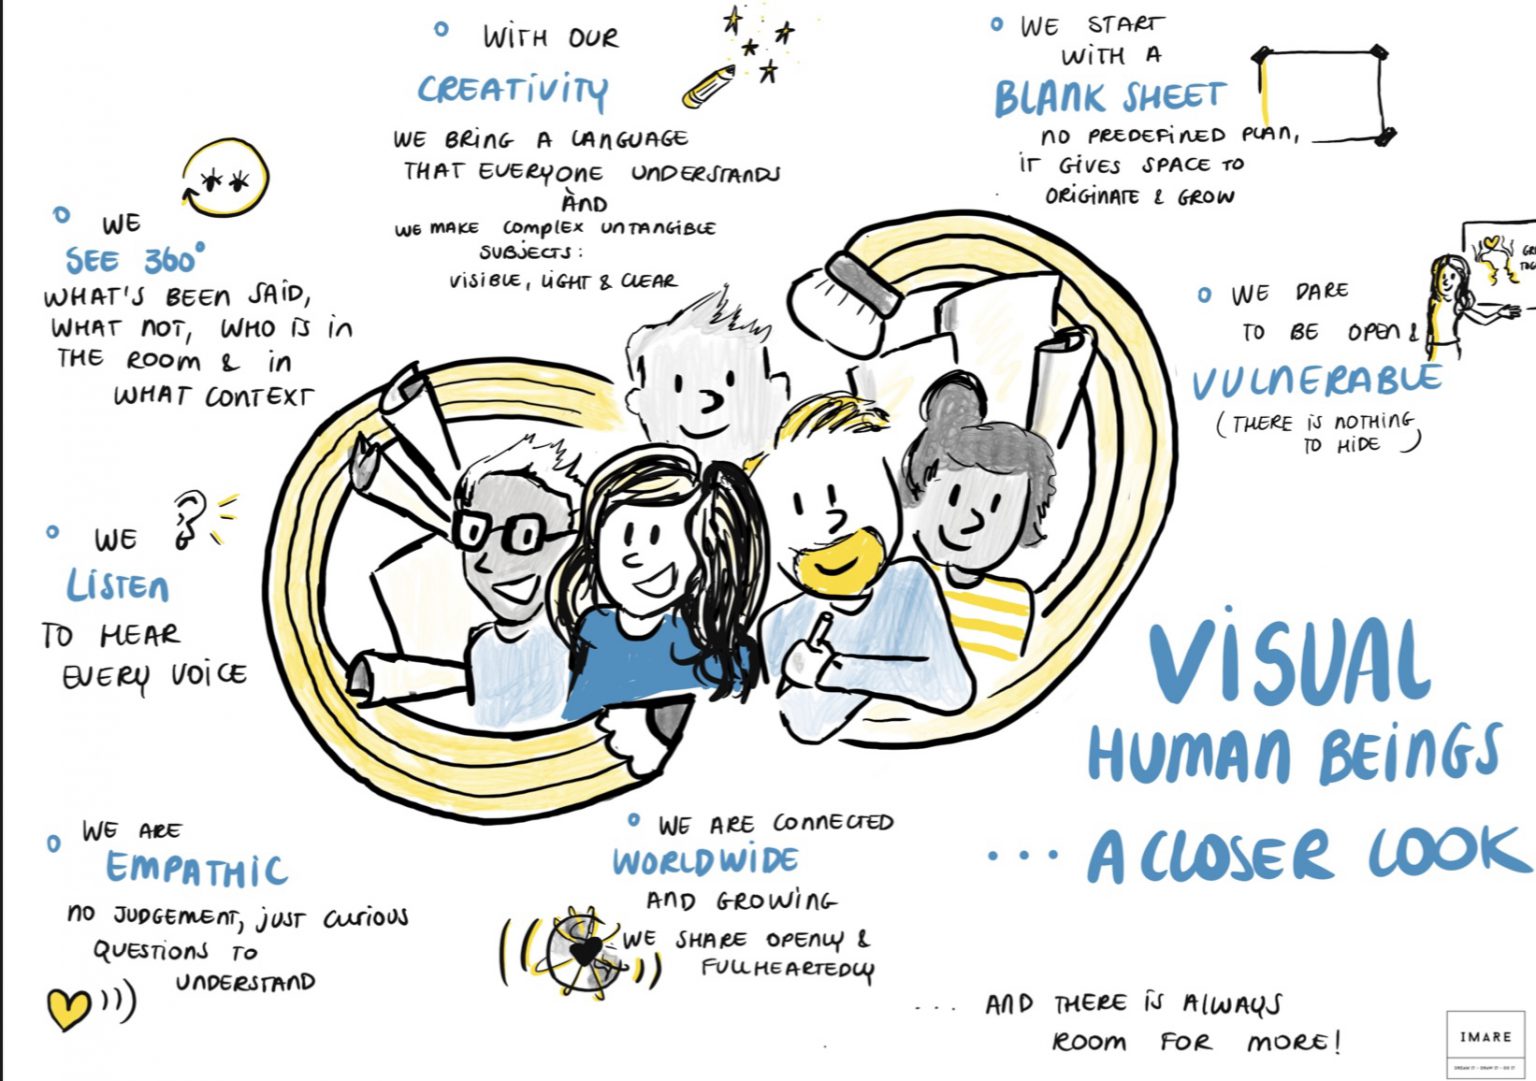 WITH OUR
CREATIVITY
WE BRING A LANGUAGE
THAT EVERYONE UNDERSTANDS
AND
WE MAKE COMPLEX UNTANGIBLE
SUBJECTS:
VISIBLE, LIGHT & CLEAR
WE START
WITH A
BLANK SHEET
NO PREDEFINED PLAN,
IT GIVES SPACE TO
ORIGINATE & GROW
WE
SEE 360°
WHAT'S BEEN SAID,
WHAT NOT, WHO IS IN
THE ROOM & IN
WHAT CONTEXT
WE DARE
TO BE OPEN &
VULNERABLE
(THERE IS NOTHING
TO HIDE)
WE
LISTEN
TO HEAR
EVERY VOICE
VISUAL
HUMAN BEINGS
... A CLOSER LOOK
WE ARE
EMPATHIC
NO JUDGEMENT, JUST CURIOUS
QUESTIONS TO
UNDERSTAND
WE ARE CONNECTED
WORLDWIDE
AND GROWING
WE SHARE OPENLY &
FULLHEARTEDLY
... AND THERE IS ALWAYS
ROOM FOR MORE!
IMARE
DREAM IT - DRAW IT - DO IT